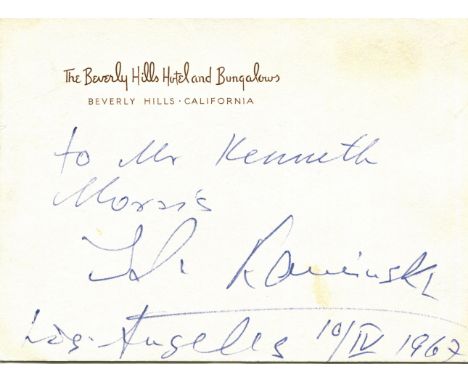 The Beverly Hills Hotel and Bungalows
BEVERLY HILLS · CALIFORNIA
to Mr Kenneth
Morris
Kaminski
Los-Angeles 10/IV 1967